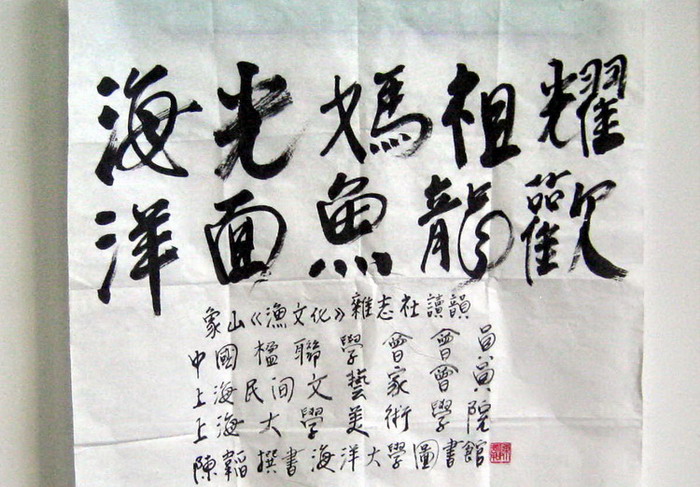 海光媽祖耀
洋面魚龍歡
象山《漁文化》雜志社讀韻
中國楹聯學會會員
上海民间文藝家會員
上海大學美術學院
陳韜撰書海洋大學圖書館